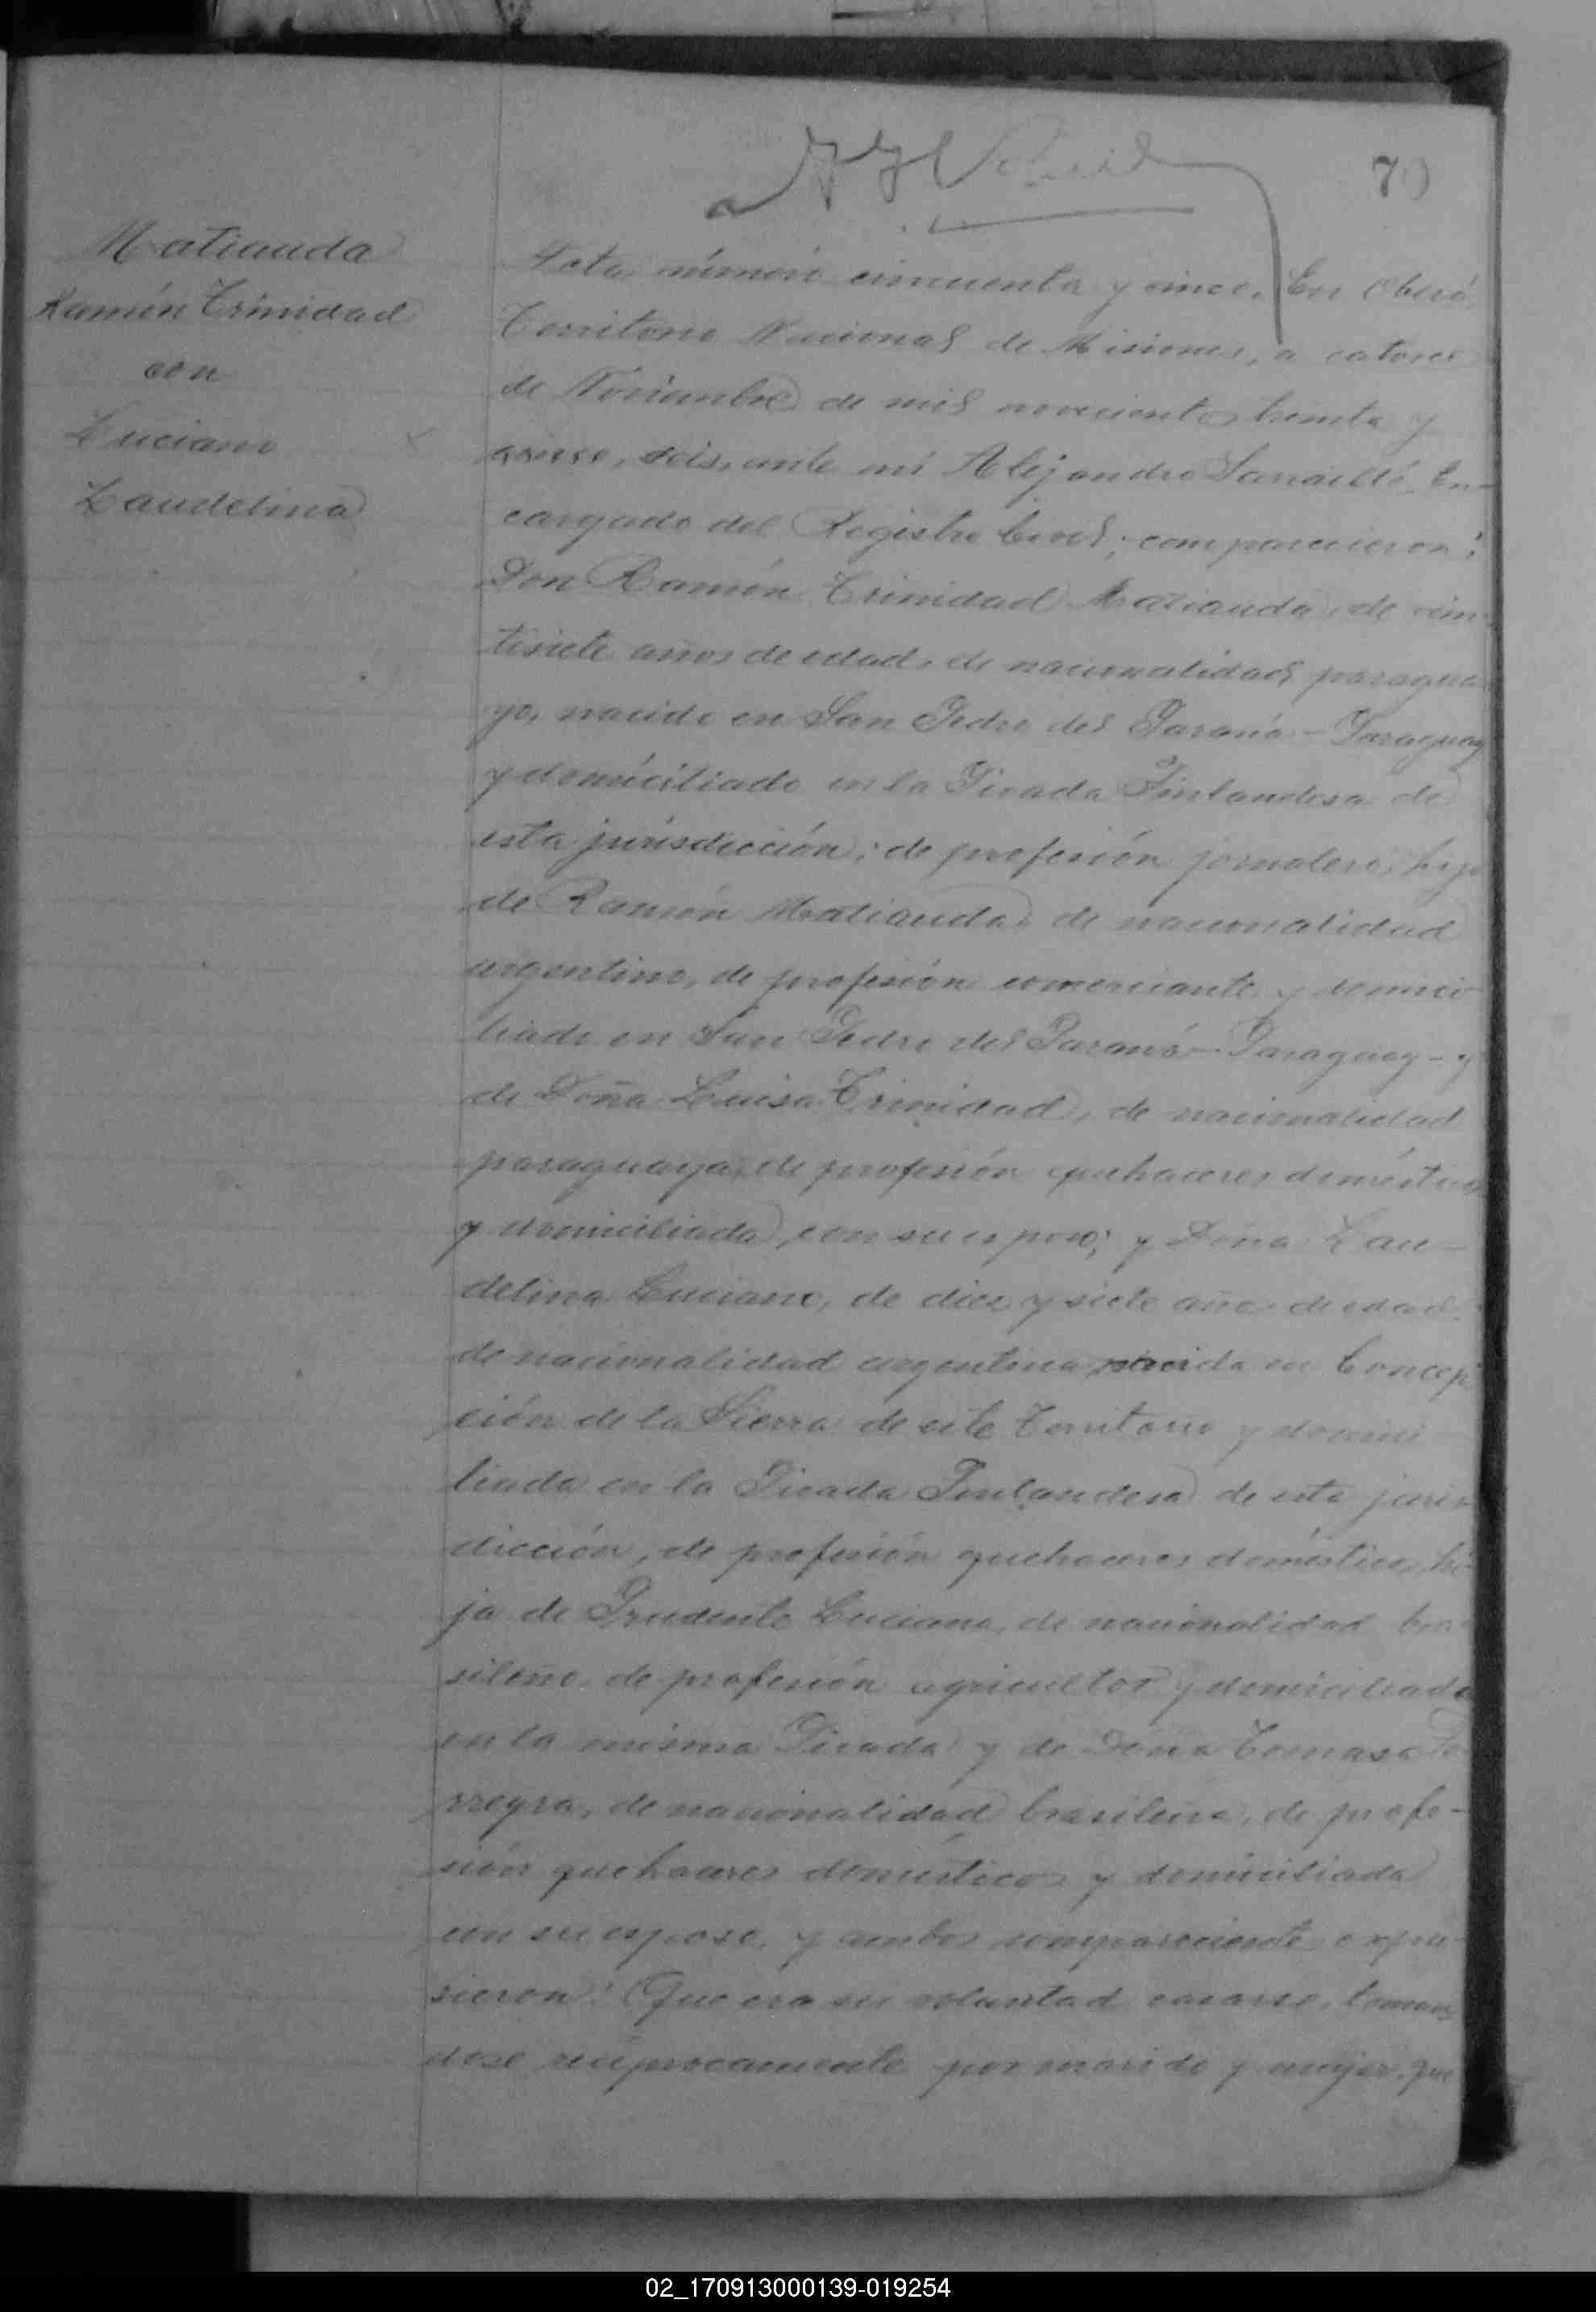 70
Matiauda
Ramón Trinidad
con
Luciano
Laudelina
Acta número cincuenta y cinco. En Oberá
Territorio Nacional de Misiones, a catorce
de Noviembre de mil novecientos treinta y
cinco, seis, ante mí Alejandro En-
cargado del Registro Civil; comparecieron:
Don Ramón Trinidad Matiauda, de vein
tisiete años de edad, de nacionalidad paragua
yo, nacido en San Pedro del Paraná - Paraguay
y domiciliado en la Picada Finlandesa de
esta jurisdicción; de profesión jornalero, hijo
de Ramón Matiauda, de nacionalidad
argentino, de profesión comerciante y domici
liado en San Pedro del Paraná - Paraguay - y
de Doña Luisa Trinidad, de nacionalidad
paraguaya, de profesión quehaceres domésticos
y domiciliada con su esposo; y Doña Lau-
delina Luciano, de diez y siete años de edad
de nacionalidad argentina nacida en Concep
ción de la Sierra de este Territorio y domici-
liada en la Picada Finlandesa de esta juris
dicción, de profesión quehaceres domésticos, hi-
ja de Prudente Luciano, de nacionalidad bra
sileño, de profesión agricultor y domiciliado
en la misma Picada y de Doña Tomasa
rreyra, de nacionalidad brasileña, de profe-
sión quehaceres domésticos y domiciliada
con su esposo, y ambos comparecientes expu
sieron: Que era su voluntad casarse, toman
dose reciprocamente por marido y mujer, que
02_170913000139-019254